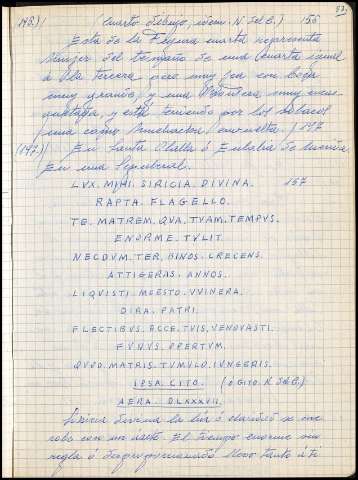 53.
148.) (Cuarto dibujo, idem. N. del C.) 156
Esta de la Figura cuarta representa
Mujer del tamaño de una Cuarta igual
á la tercera pero muy fea con boca
muy grande, y una Delantera muy
y está teniendo por los sobacos
una como envuelta. / 147
(147.) En Santa Olalla ó Eulalia de
En una Sepulcral.
LVX. MIHI. SIRICIA. DIVINA. 157
RAPTA. FLAGELLO.
TE. MATREM. QVA. TVAM. TEMPVS.
ENORME. TVLIT.
NECDVM. TER. BINOS. CRECENS.
ATTIGERAS. ANNOS.
LIQVISTI. MOESTO. VVINERA.
DIRA. PATRI.
FLECTIBVS. ECCE. TVIS, VENOVASTI.
FVNVS. OPERTVM.
QVOD. MATRIS. TVMVLO. IVNGERIS.
IPSA. CITO. (ó GITO. N. del C.)
AERA. DLXXXVII.
Siricia Divina la luz ó claridad se me
robo con un azote. El tiempo enorme sin
regla ó desproporcionado llevo tanto á ti